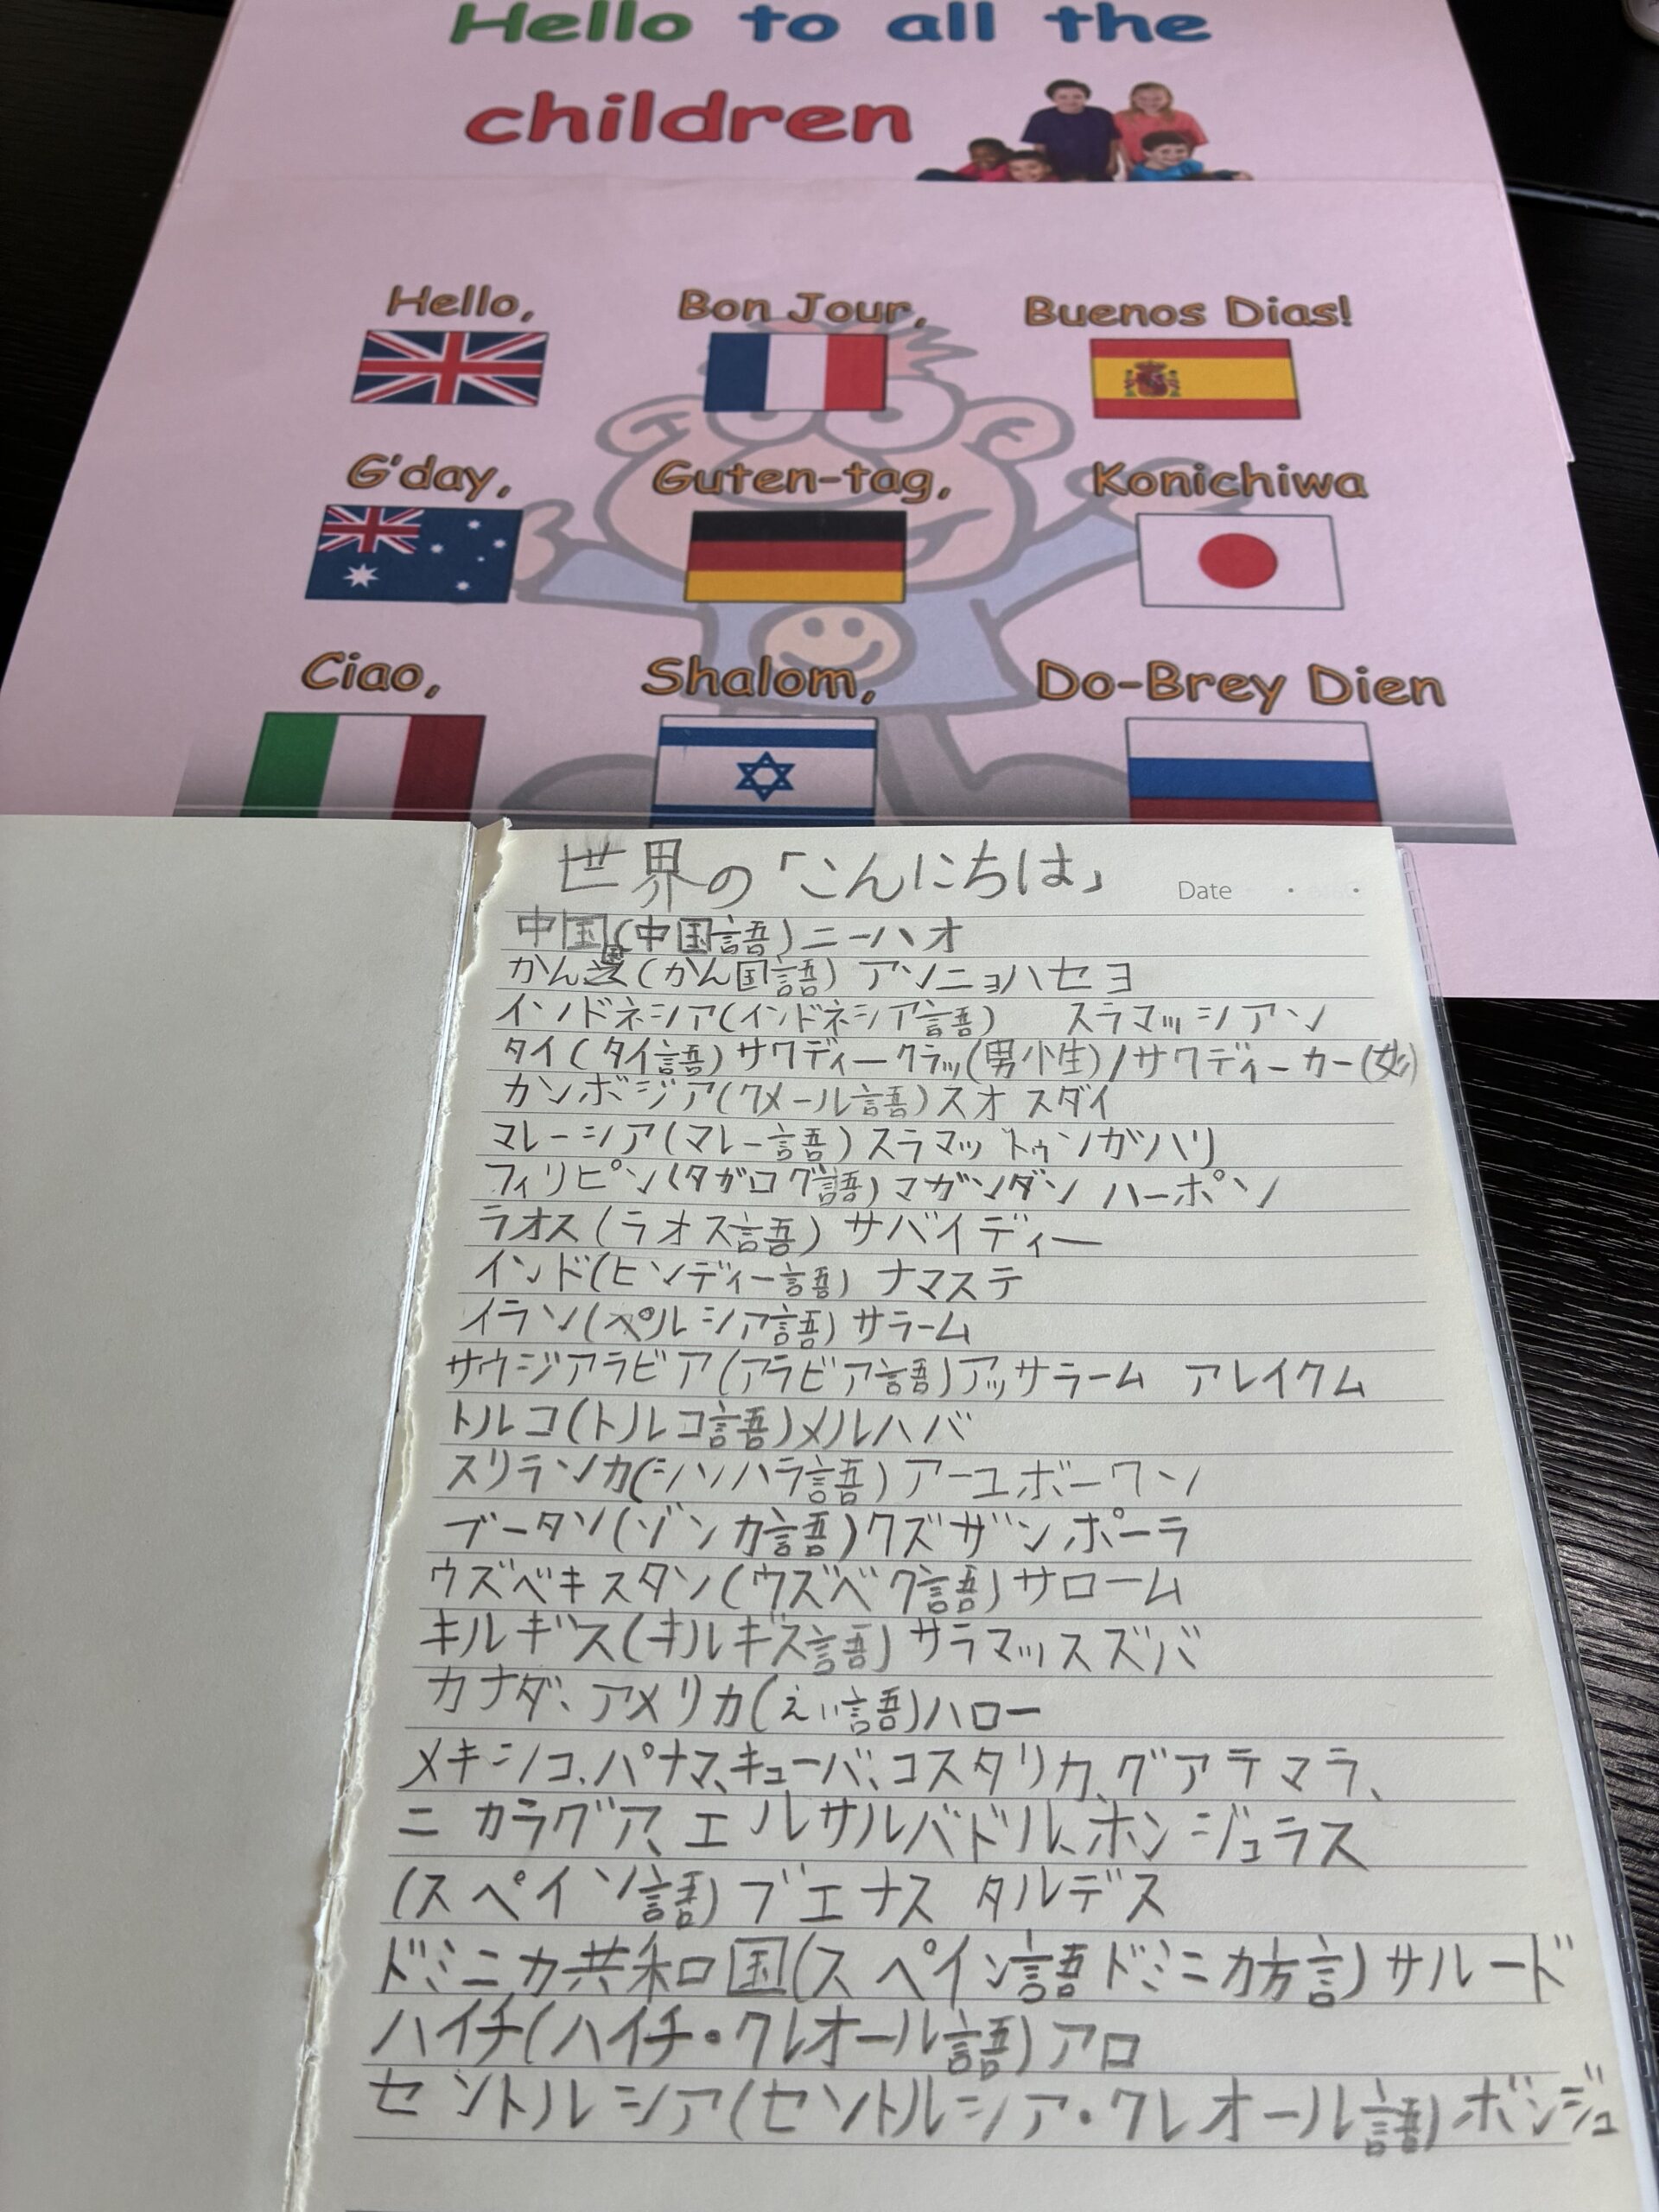 Hello to all the
children
Hello, Bon Jour, Buenos Dias!
G'day, Guten-tag, Konichiwa
Ciao, Shalom, Do-Brey Dien
世界の「こんにちは」 Date
中国(中国語)ニーハオ
かん国(かん国語) アンニョハセヨ
インドネシア(インドネシア語) スラマッシアン
タイ(タイ語)サワディークラッ(男性)/サワディーカー(女)
カンボジア(クメール語)スオ スダイ
マレーシア(マレー語)スラマットゥンガハリ
フィリピン(タガログ語)マガンダン ハーポン
ラオス(ラオス語) サバイディー
インド(ヒンディー語) ナマステ
イラン(ペルシア語)サラーム
サウジアラビア(アラビア語)アッサラーム アレイクム
トルコ(トルコ語)メルハバ
スリランカ(シンハラ語)アーユボーワン
ブータン(ゾンカ語)クズザンポーラ
ウズベキスタン(ウズベク語)サローム
キルギス(キルギス語)サラマッスズバ
カナダ、アメリカ(えい語)ハロー
メキシコ、パナマ、キューバ、コスタリカ、グアテマラ、
ニカラグア、エルサルバドル、ホンジュラス
(スペイン語)ブエナス タルデス
ドミニカ共和国(スペイン語ドミニカ方言)サルード
ハイチ(ハイチ・クレオール語)アロ
セントルシア(セントルシア・クレオール語)ボンジュ